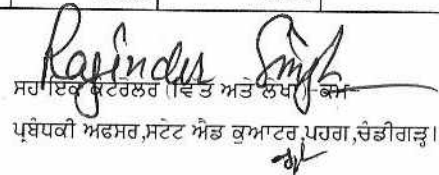 Rajinder Singh
ਸਹਾਇਕ ਕੰਟਰੋਲਰ (ਵਿੱਤ ਅਤੇ ਲੇਖਾ)-ਕਮ-
ਪ੍ਰਬੰਧਕੀ ਅਫਸਰ,ਸਟੇਟ ਐਡ ਕੁਆਟਰ,ਪਹਗ,ਚੰਡੀਗੜ੍ਹ।